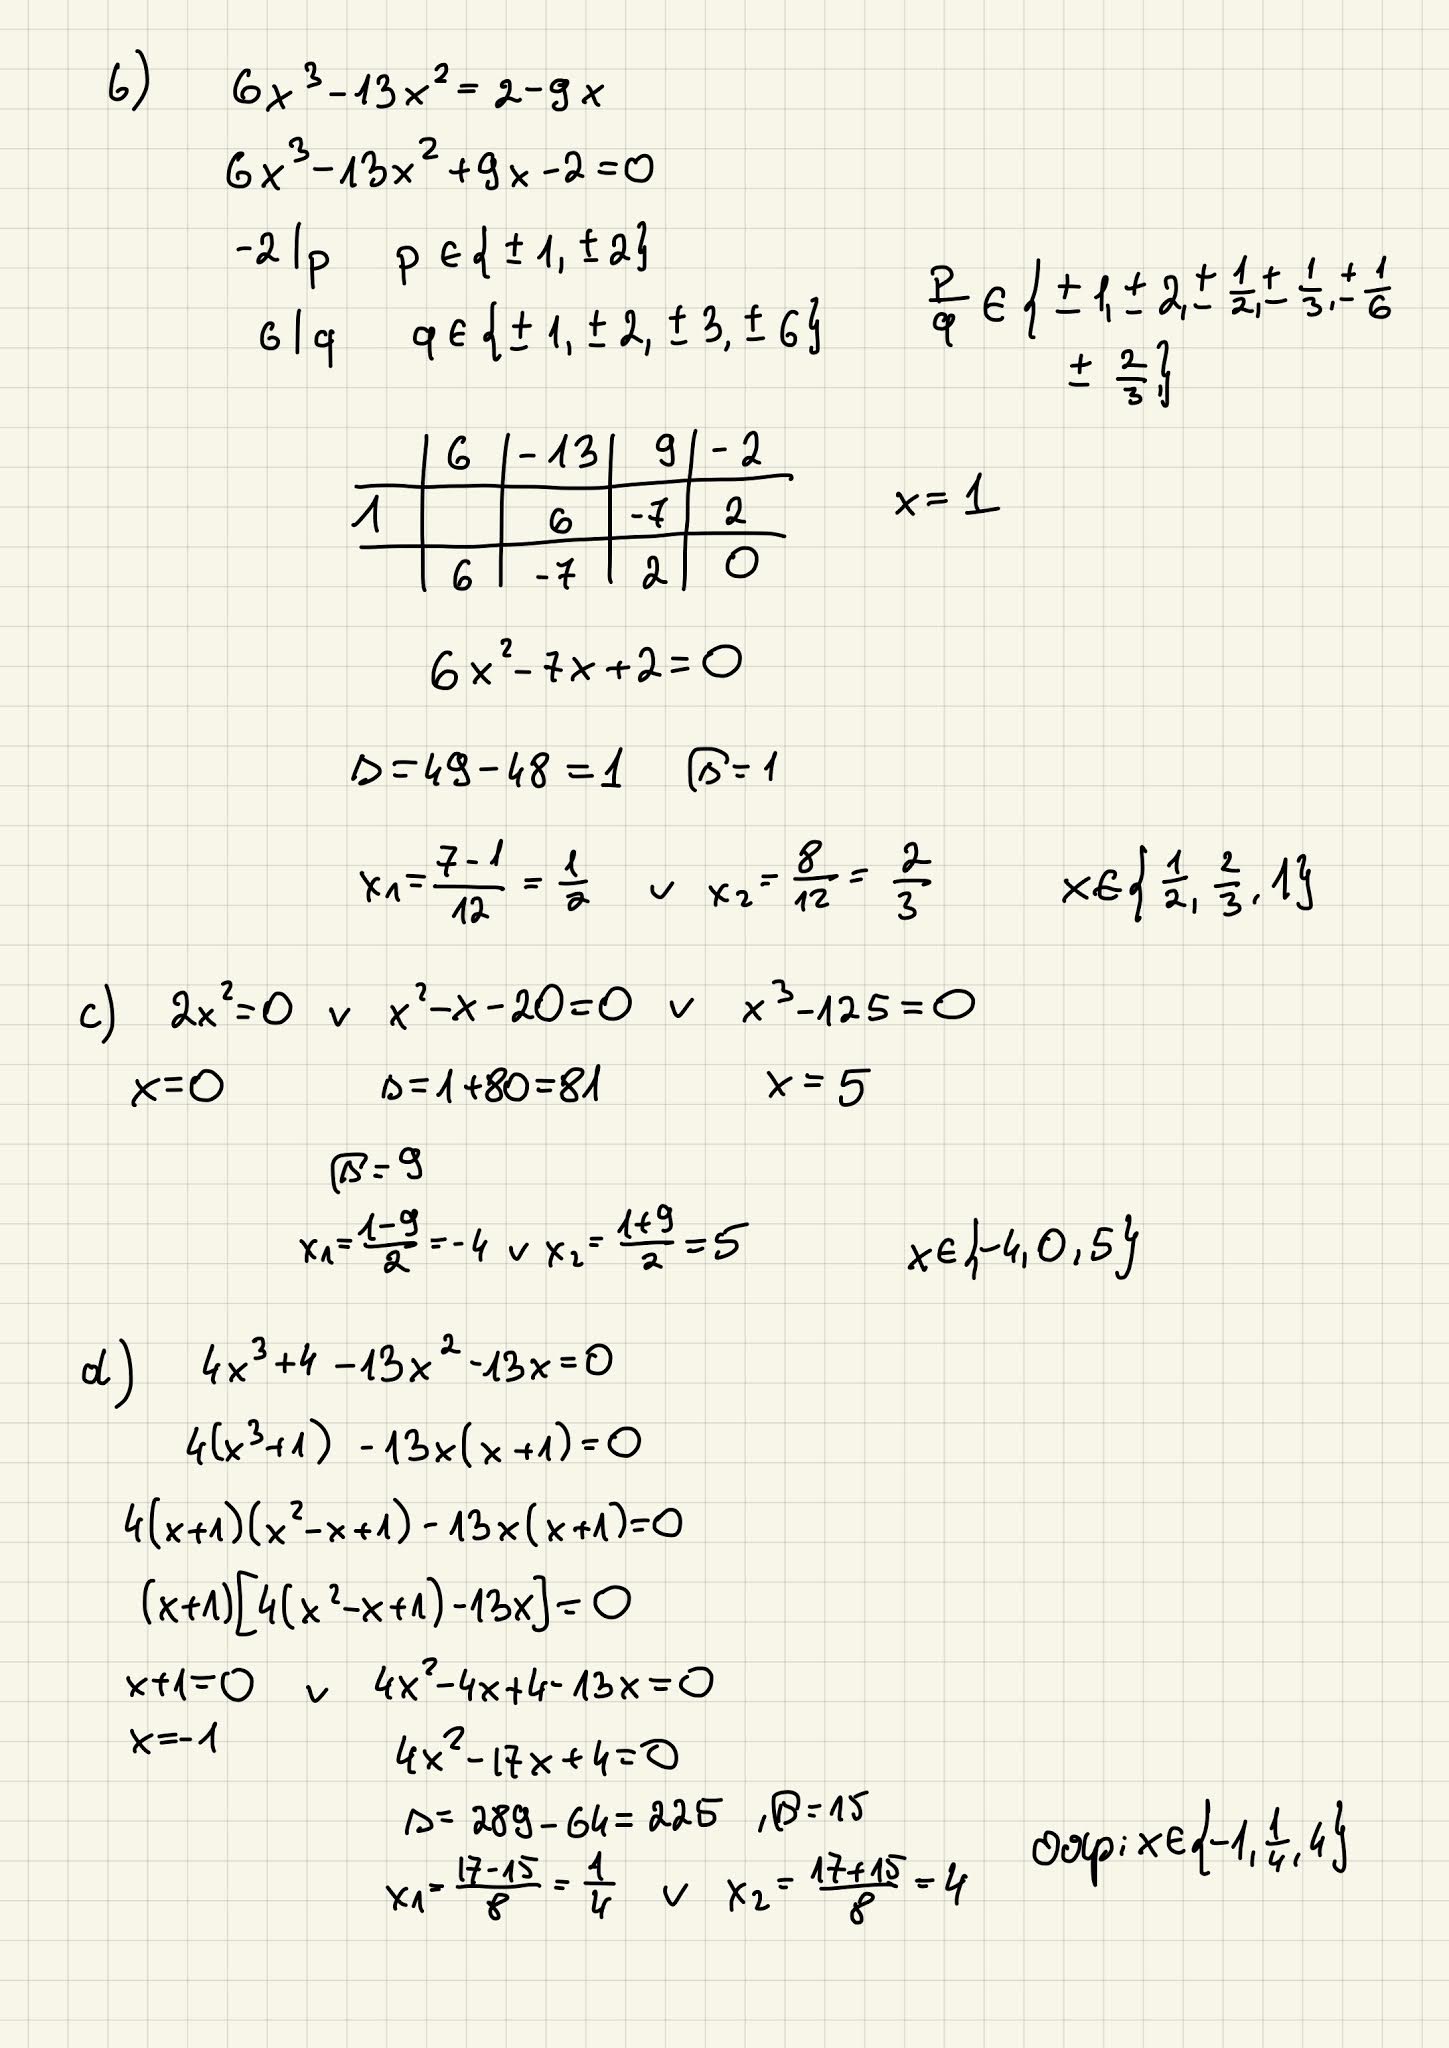 b) 6x³-13x²=2-9x
6x³-13x²+9x-2=0
-2|p p∈{±1,±2}
6|q q∈{±1,±2,±3,±6} p/q ∈ {±1,±2,±1/2,±1/3,±1/6
±2/3}
6 -13 9 -2
1 6 -7 2 x=1
6 -7 2 0
6x²-7x+2=0
Δ=49-48=1 √Δ=1
x₁=(7-1)/12=1/2 ∨ x₂=8/12=2/3 x∈{1/2,2/3,1}
c) 2x²=0 ∨ x²-x-20=0 ∨ x³-125=0
x=0 Δ=1+80=81 x=5
√Δ=9
x₁=(1-9)/2=-4 ∨ x₂=(1+9)/2=5 x∈{-4,0,5}
d) 4x³+4-13x²-13x=0
4(x³+1) -13x(x+1)=0
4(x+1)(x²-x+1)-13x(x+1)=0
(x+1)[4(x²-x+1)-13x]=0
x+1=0 ∨ 4x²-4x+4-13x=0
x=-1 4x²-17x+4=0
Δ=289-64=225 ,√Δ=15
x₁=(17-15)/8=1/4 ∨ x₂=(17+15)/8=4 Odp: x∈{-1,1/4,4}